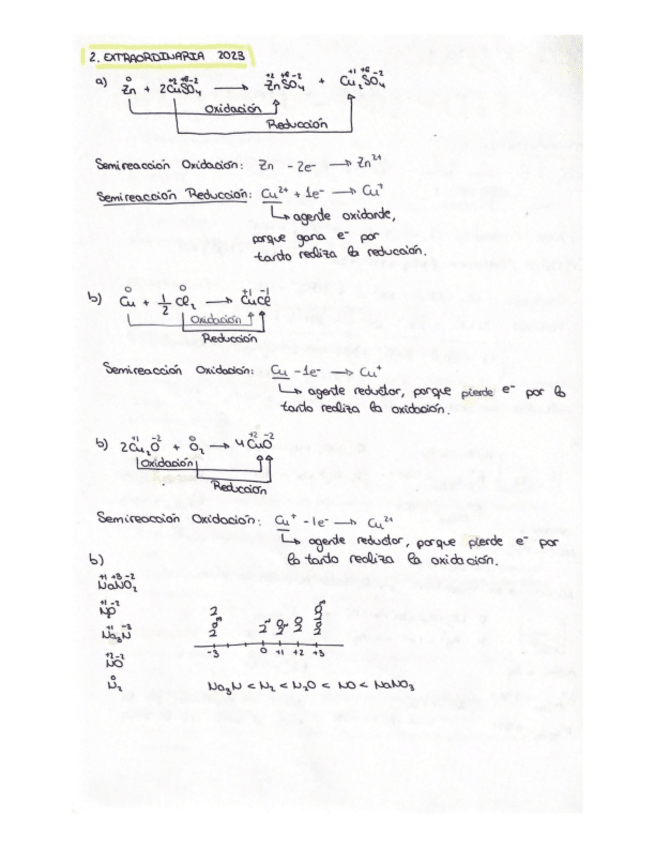 2. EXTRAORDINARIA 2023
a) Zn + 2CuSO₄ → ZnSO₄ + Cu₂SO₄
Oxidación
Reducción
Semireacción Oxidación: Zn - 2e⁻ → Zn²⁺
Semireacción Reducción: Cu²⁺ + 1e⁻ → Cu⁺
↳ agente oxidante,
porque gana e⁻ por
tanto realiza la reducción.
b) Cu + 1/2 Cl₂ → CuCl
Oxidación
Reducción
Semireacción Oxidación: Cu - 1e⁻ → Cu⁺
↳ agente reductor, porque pierde e⁻ por lo
tanto realiza la oxidación.
b) 2Cu₂O + O₂ → 4CuO
Oxidación
Reducción
Semireacción Oxidación: Cu⁺ - 1e⁻ → Cu²⁺
↳ agente reductor, porque pierde e⁻ por
lo tanto realiza la oxidación.
b)
NaNO₂
Na₃N
NO
N₂
-3 0 +1 +2 +3
Na₃N < N₂ < N₂O < NO < NaNO₃